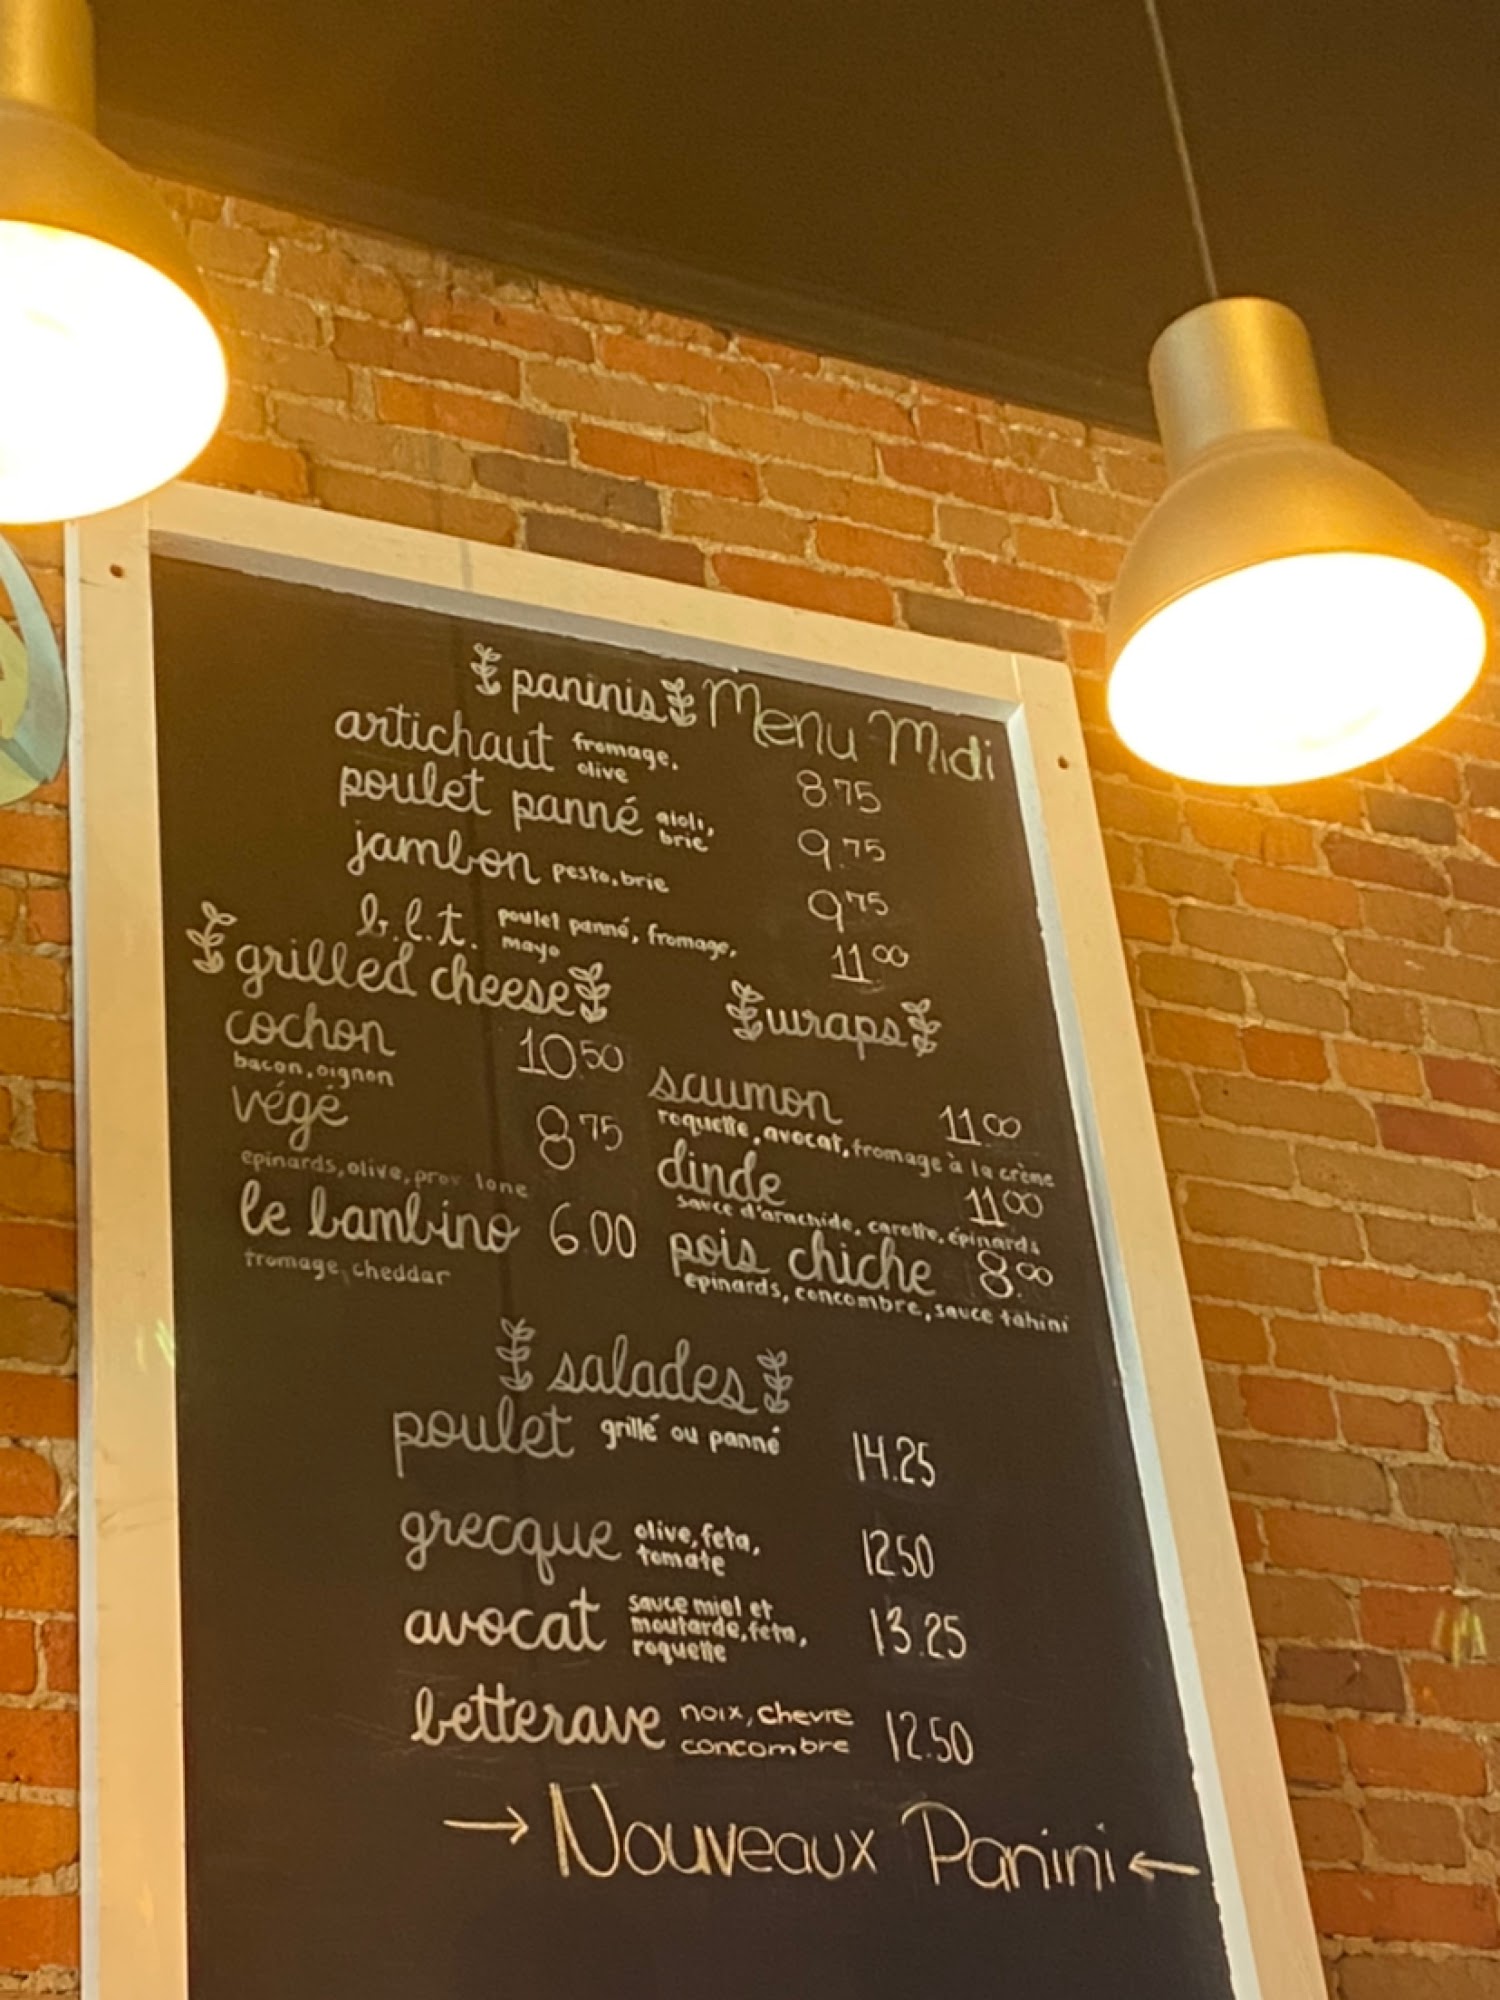 paninis Menu Midi
artichaut fromage, 8.75
olive
poulet panné aioli, 9.75
brie
jambon pesto, brie 9.75
b.l.t. poulet panné, fromage, 11.00
mayo
grilled cheese
cochon 10.50
bacon, oignon
végé 8.75
epinards, olive, prov lone
le bambino 6.00
fromage cheddar
wraps
saumon 11.00
roquette, avocat, fromage à la crème
dinde 11.00
sauce d'arachide, carotte, épinards
pois chiche 8.00
epinards, concombre, sauce tahini
salades
poulet grillé ou panné 14.25
grecque olive, feta, 12.50
tomate
avocat sauce miel et 13.25
moutarde, feta,
roquette
betterave noix, chevre 12.50
concombre
→ Nouveaux Panini ←